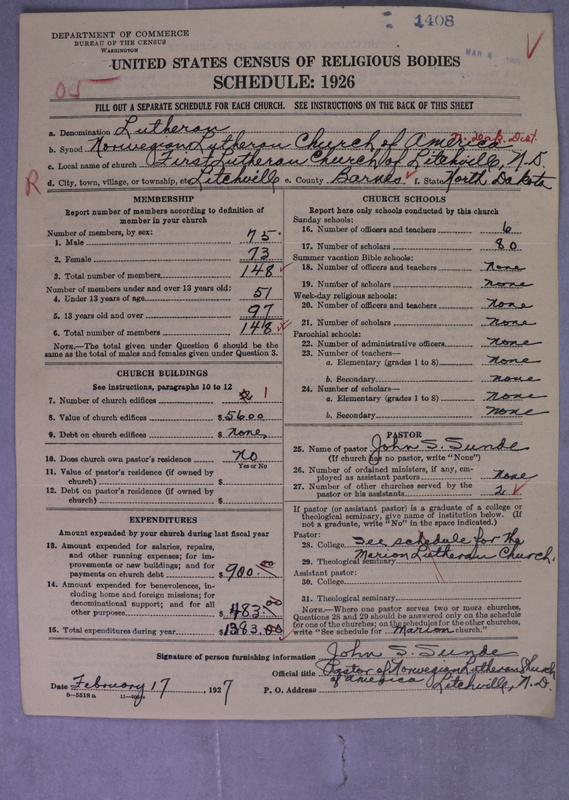 1408
DEPARTMENT OF COMMERCE
BUREAU OF THE CENSUS
WASHINGTON
UNITED STATES CENSUS OF RELIGIOUS BODIES
SCHEDULE: 1926
FILL OUT A SEPARATE SCHEDULE FOR EACH CHURCH. SEE INSTRUCTIONS ON THE BACK OF THIS SHEET
a. Denomination Lutheran
b. Synod Norwegian Lutheran Church of America N. Dak. Dist.
c. Local name of church First Lutheran Church of Litchville, N.D.
R d. City, town, village, or township, etc. Litchville e. County Barnes f. State North Dakota
MEMBERSHIP
Report number of members according to definition of
member in your church
Number of members, by sex:
1. Male 75
2. Female 73
3. Total number of members 148
Number of members under and over 13 years old:
4. Under 13 years of age 51
5. 13 years old and over 97
6. Total number of members 148
NOTE.—The total given under Question 6 should be the
same as the total of males and females given under Question 3.
CHURCH BUILDINGS
See instructions, paragraphs 10 to 12
7. Number of church edifices 1
8. Value of church edifices $5600
9. Debt on church edifices $None
10. Does church own pastor's residence? No
Yes or No
11. Value of pastor's residence (if owned by
church) $
12. Debt on pastor's residence (if owned by
church) $
EXPENDITURES
Amount expended by your church during last fiscal year
13. Amount expended for salaries, repairs,
and other running expenses; for im-
provements or new buildings; and for
payments on church debt $900.00
14. Amount expended for benevolences, in-
cluding home and foreign missions; for
denominational support; and for all
other purposes $483.00
15. Total expenditures during year $1383.00
CHURCH SCHOOLS
Report here only schools conducted by this church
Sunday schools:
16. Number of officers and teachers 6
17. Number of scholars 80
Summer vacation Bible schools:
18. Number of officers and teachers None
19. Number of scholars None
Week-day religious schools:
20. Number of officers and teachers None
21. Number of scholars None
Parochial schools:
22. Number of administrative officers None
23. Number of teachers—
a. Elementary (grades 1 to 8) None
b. Secondary None
24. Number of scholars—
a. Elementary (grades 1 to 8) None
b. Secondary None
PASTOR
25. Name of pastor John S. Sunde
(If church has no pastor, write "None")
26. Number of ordained ministers, if any, em-
ployed as assistant pastors None
27. Number of other churches served by the
pastor or his assistants 2
If pastor (or assistant pastor) is a graduate of a college or
theological seminary, give name of institution below. (If
not a graduate, write "No" in the space indicated.)
Pastor:
28. College See schedule for the
29. Theological seminary Marion Lutheran Church.
Assistant pastor:
30. College
31. Theological seminary
NOTE.—Where one pastor serves two or more churches,
Questions 28 and 29 should be answered only on the schedule
for one of the churches; on the schedules for the other churches,
write "See schedule for Marion church."
Signature of person furnishing information John S. Sunde
Official title Pastor of Norwegian Lutheran Church
of America
Date February 17, 1927 P. O. Address Litchville, N.D.
8—5518 a